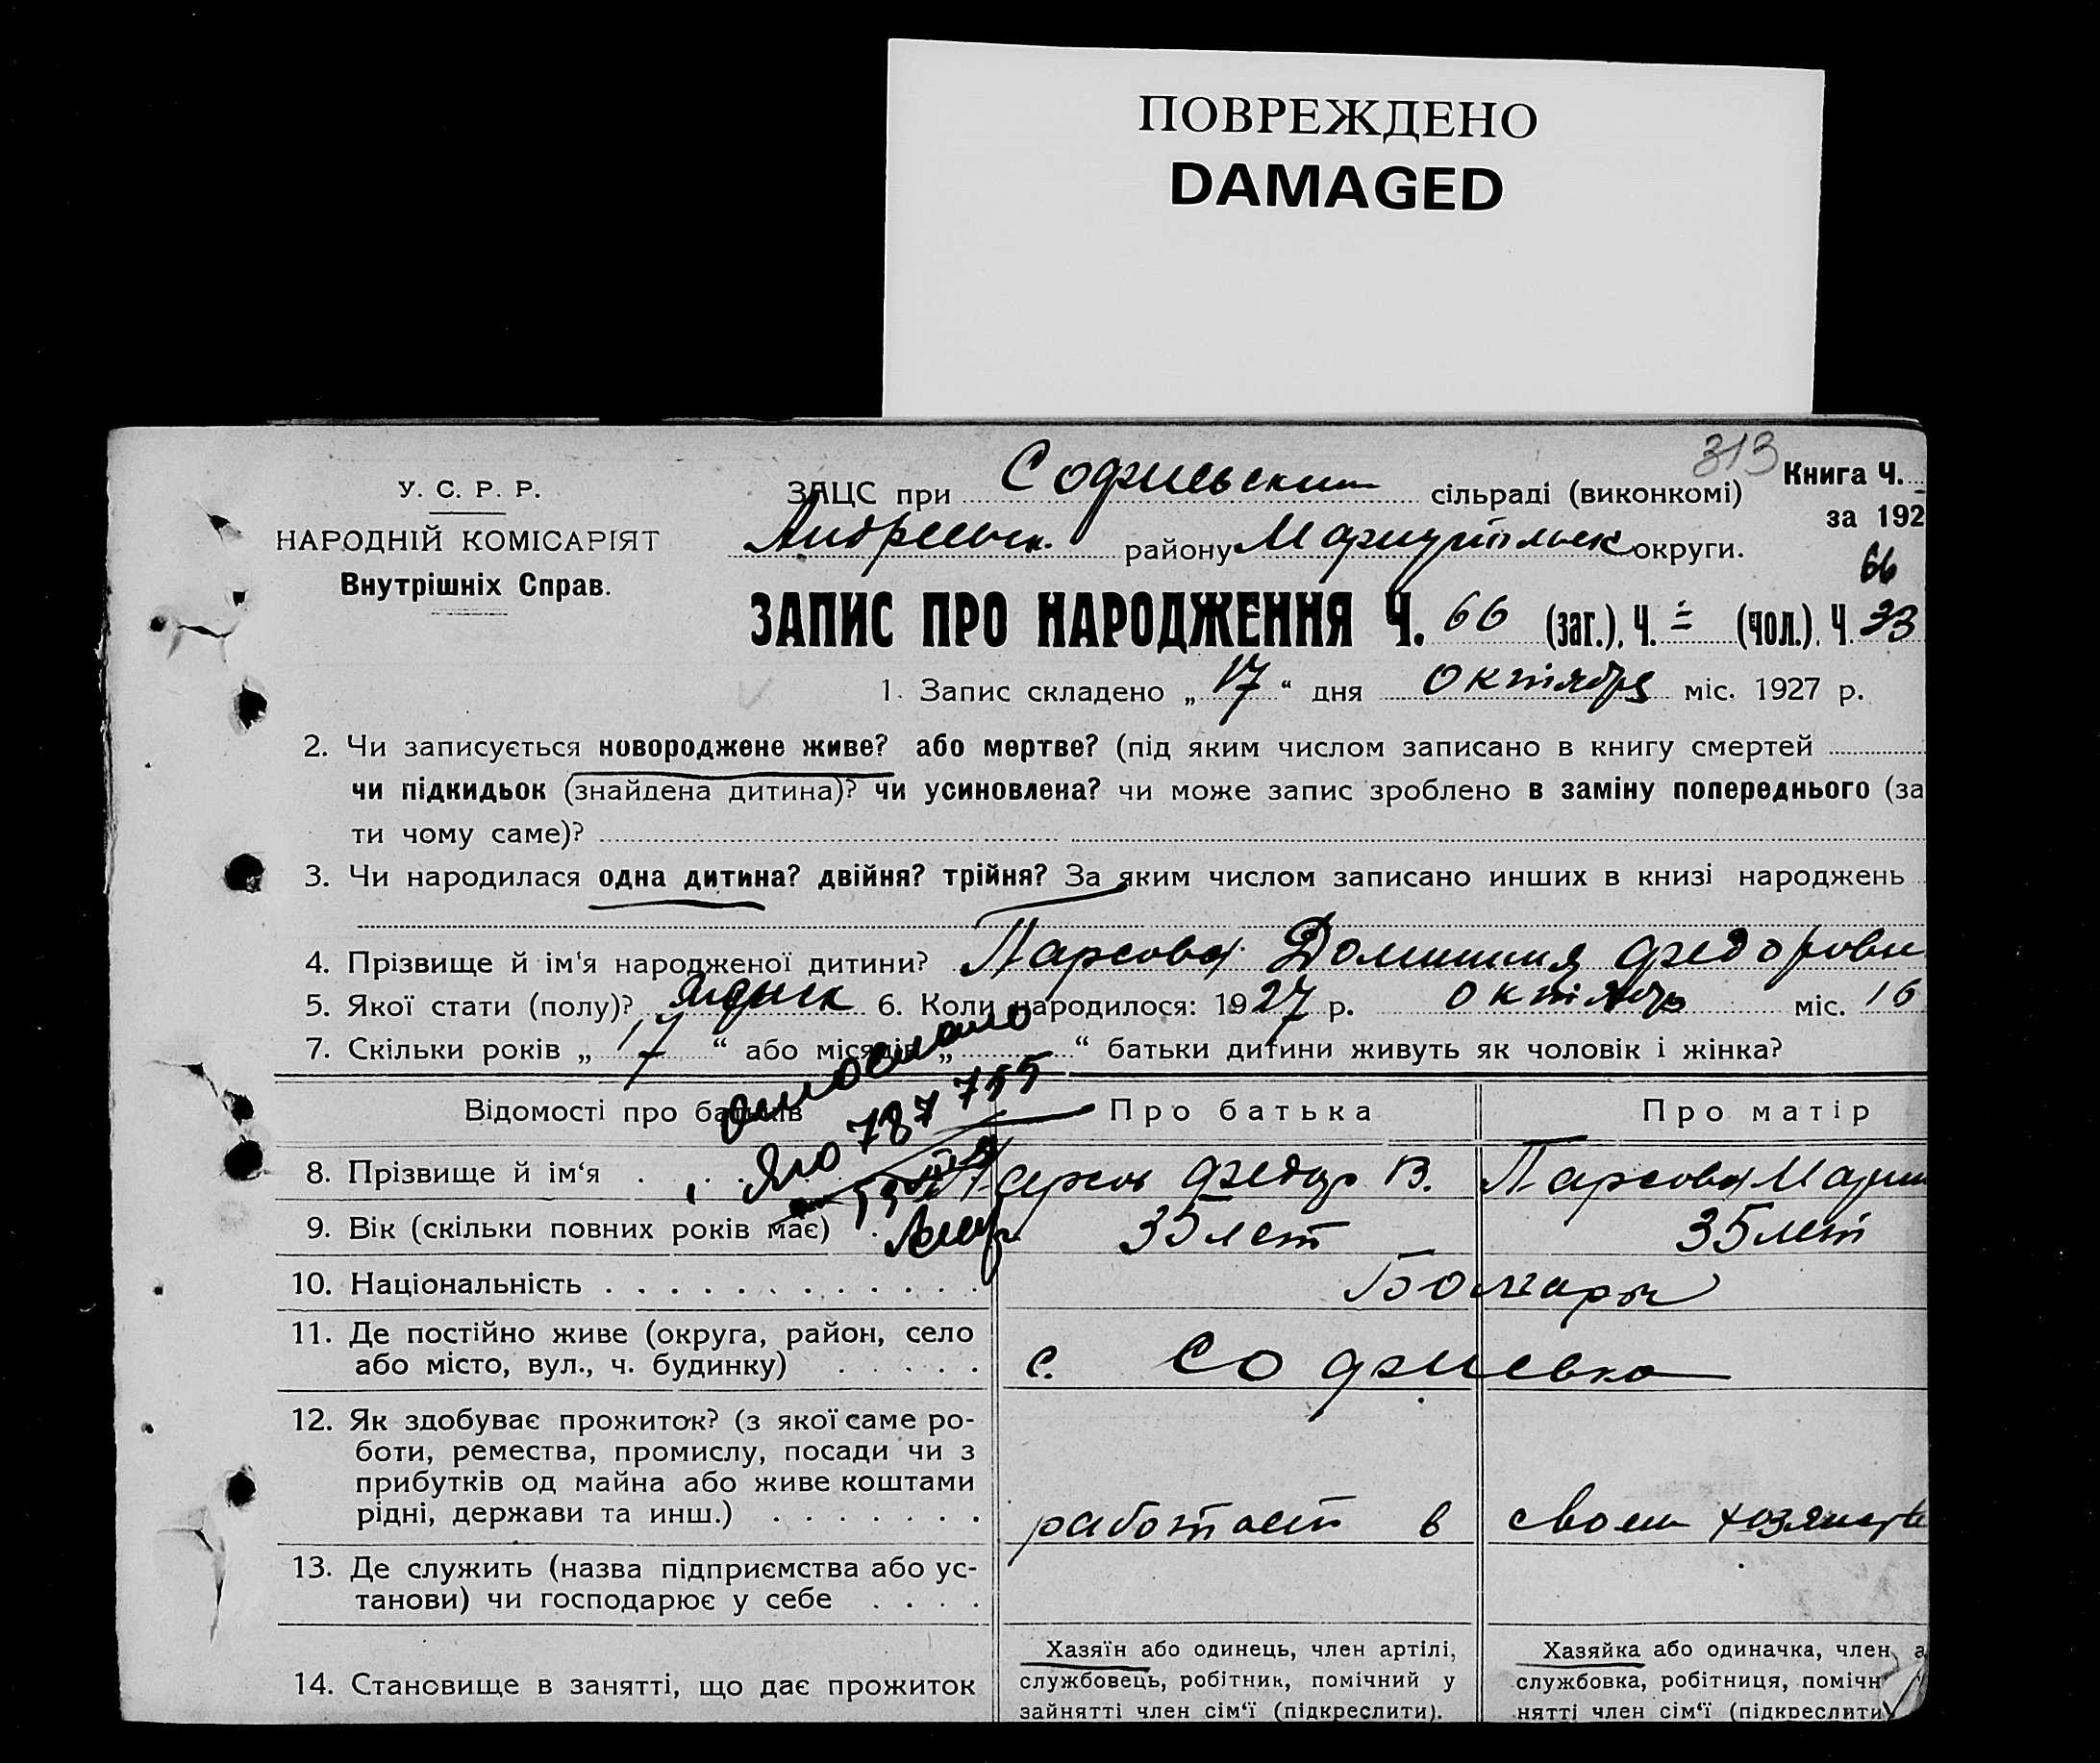 ПОВРЕЖДЕНО
DAMAGED
313
У. С. Р. Р.
НАРОДНІЙ КОМІСАРІЯТ
Внутрішніх Справ.
ЗАЦС при Софиевским сільраді (виконкомі)
Книга Ч.
за 192
Андреевск. району Мариупольск округи.
66
ЗАПИС ПРО НАРОДЖЕННЯ Ч. 66 (заг.), Ч. = (чол.), Ч. 33
1. Запис складено „ 17 “ дня Октября міс. 1927 р.
2. Чи записується новороджене живе? або мертве? (під яким числом записано в книгу смертей
чи підкидьок (знайдена дитина)? чи усиновлена? чи може запис зроблено в заміну попереднього (за
ти чому саме)?
3. Чи народилася одна дитина? двійня? трійня? За яким числом записано инших в книзі народжень
4. Прізвище й ім'я народженої дитини? Парсова Домникия Федоровн
5. Якої стати (полу)? 6. Коли народилося: 1927 р. октябр міс. 16
7. Скільки років „ 17 “ або місяців „ “ батьки дитини живуть як чоловік і жінка?
Відомості про батьків
Про батька
Про матір
787755
8. Прізвище й ім‘я
Федор В.
Парсова Мари
9. Вік (скільки повних років має)
35 лет
35 лет
10. Національність
Болгары
11. Де постійно живе (округа, район, село
або місто, вул., ч. будинку)
с. Софиевка
12. Як здобуває прожиток? (з якої саме ро-
боти, ремества, промислу, посади чи з
прибутків од майна або живе коштами
рідні, держави та инш.)
работает в своем хозяйств
13. Де служить (назва підприємства або ус-
танови) чи господарює у себе
14. Становище в занятті, що дає прожиток
Хазяїн або одинець, член артілі,
службовець, робітник, помічний у
зайнятті член сім‘ї (підкреслити).
Хазяйка або одиначка, член а
службовка, робітниця, помічн
нятті член сім‘ї (підкреслити